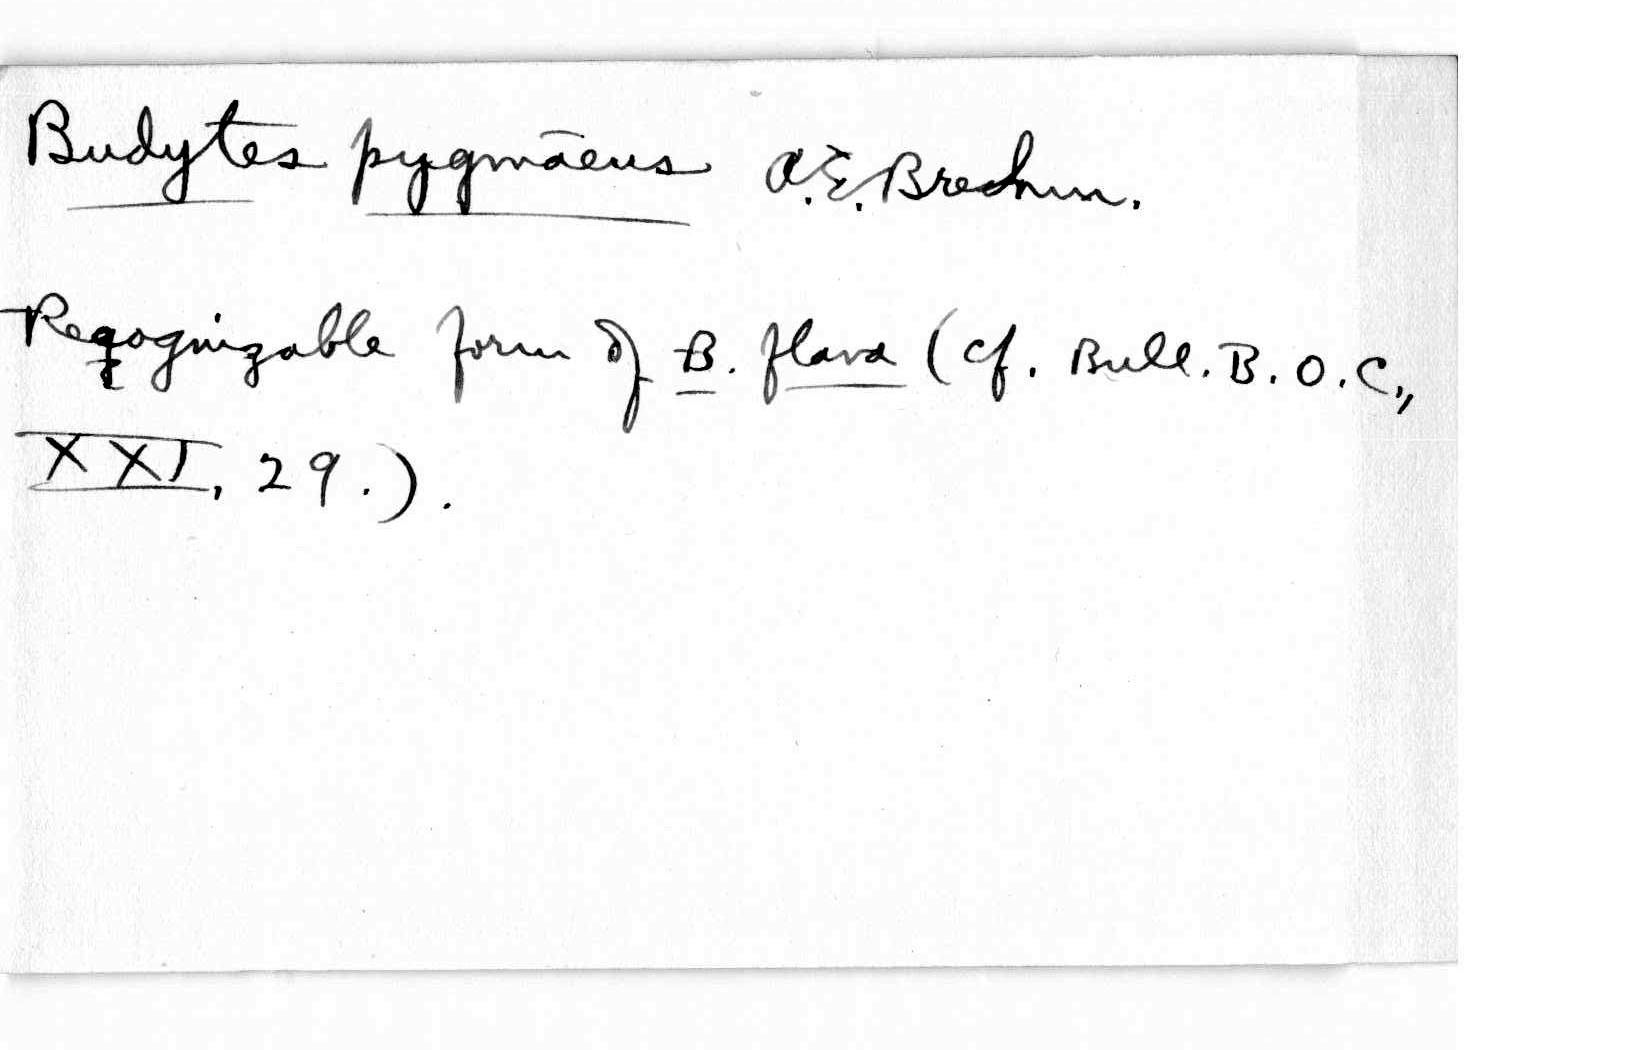 Budytes pygmāeus A.E. Brehm.
Recognizable form of B. flava (cf. Bull. B.O.C.,
XXI, 29.).